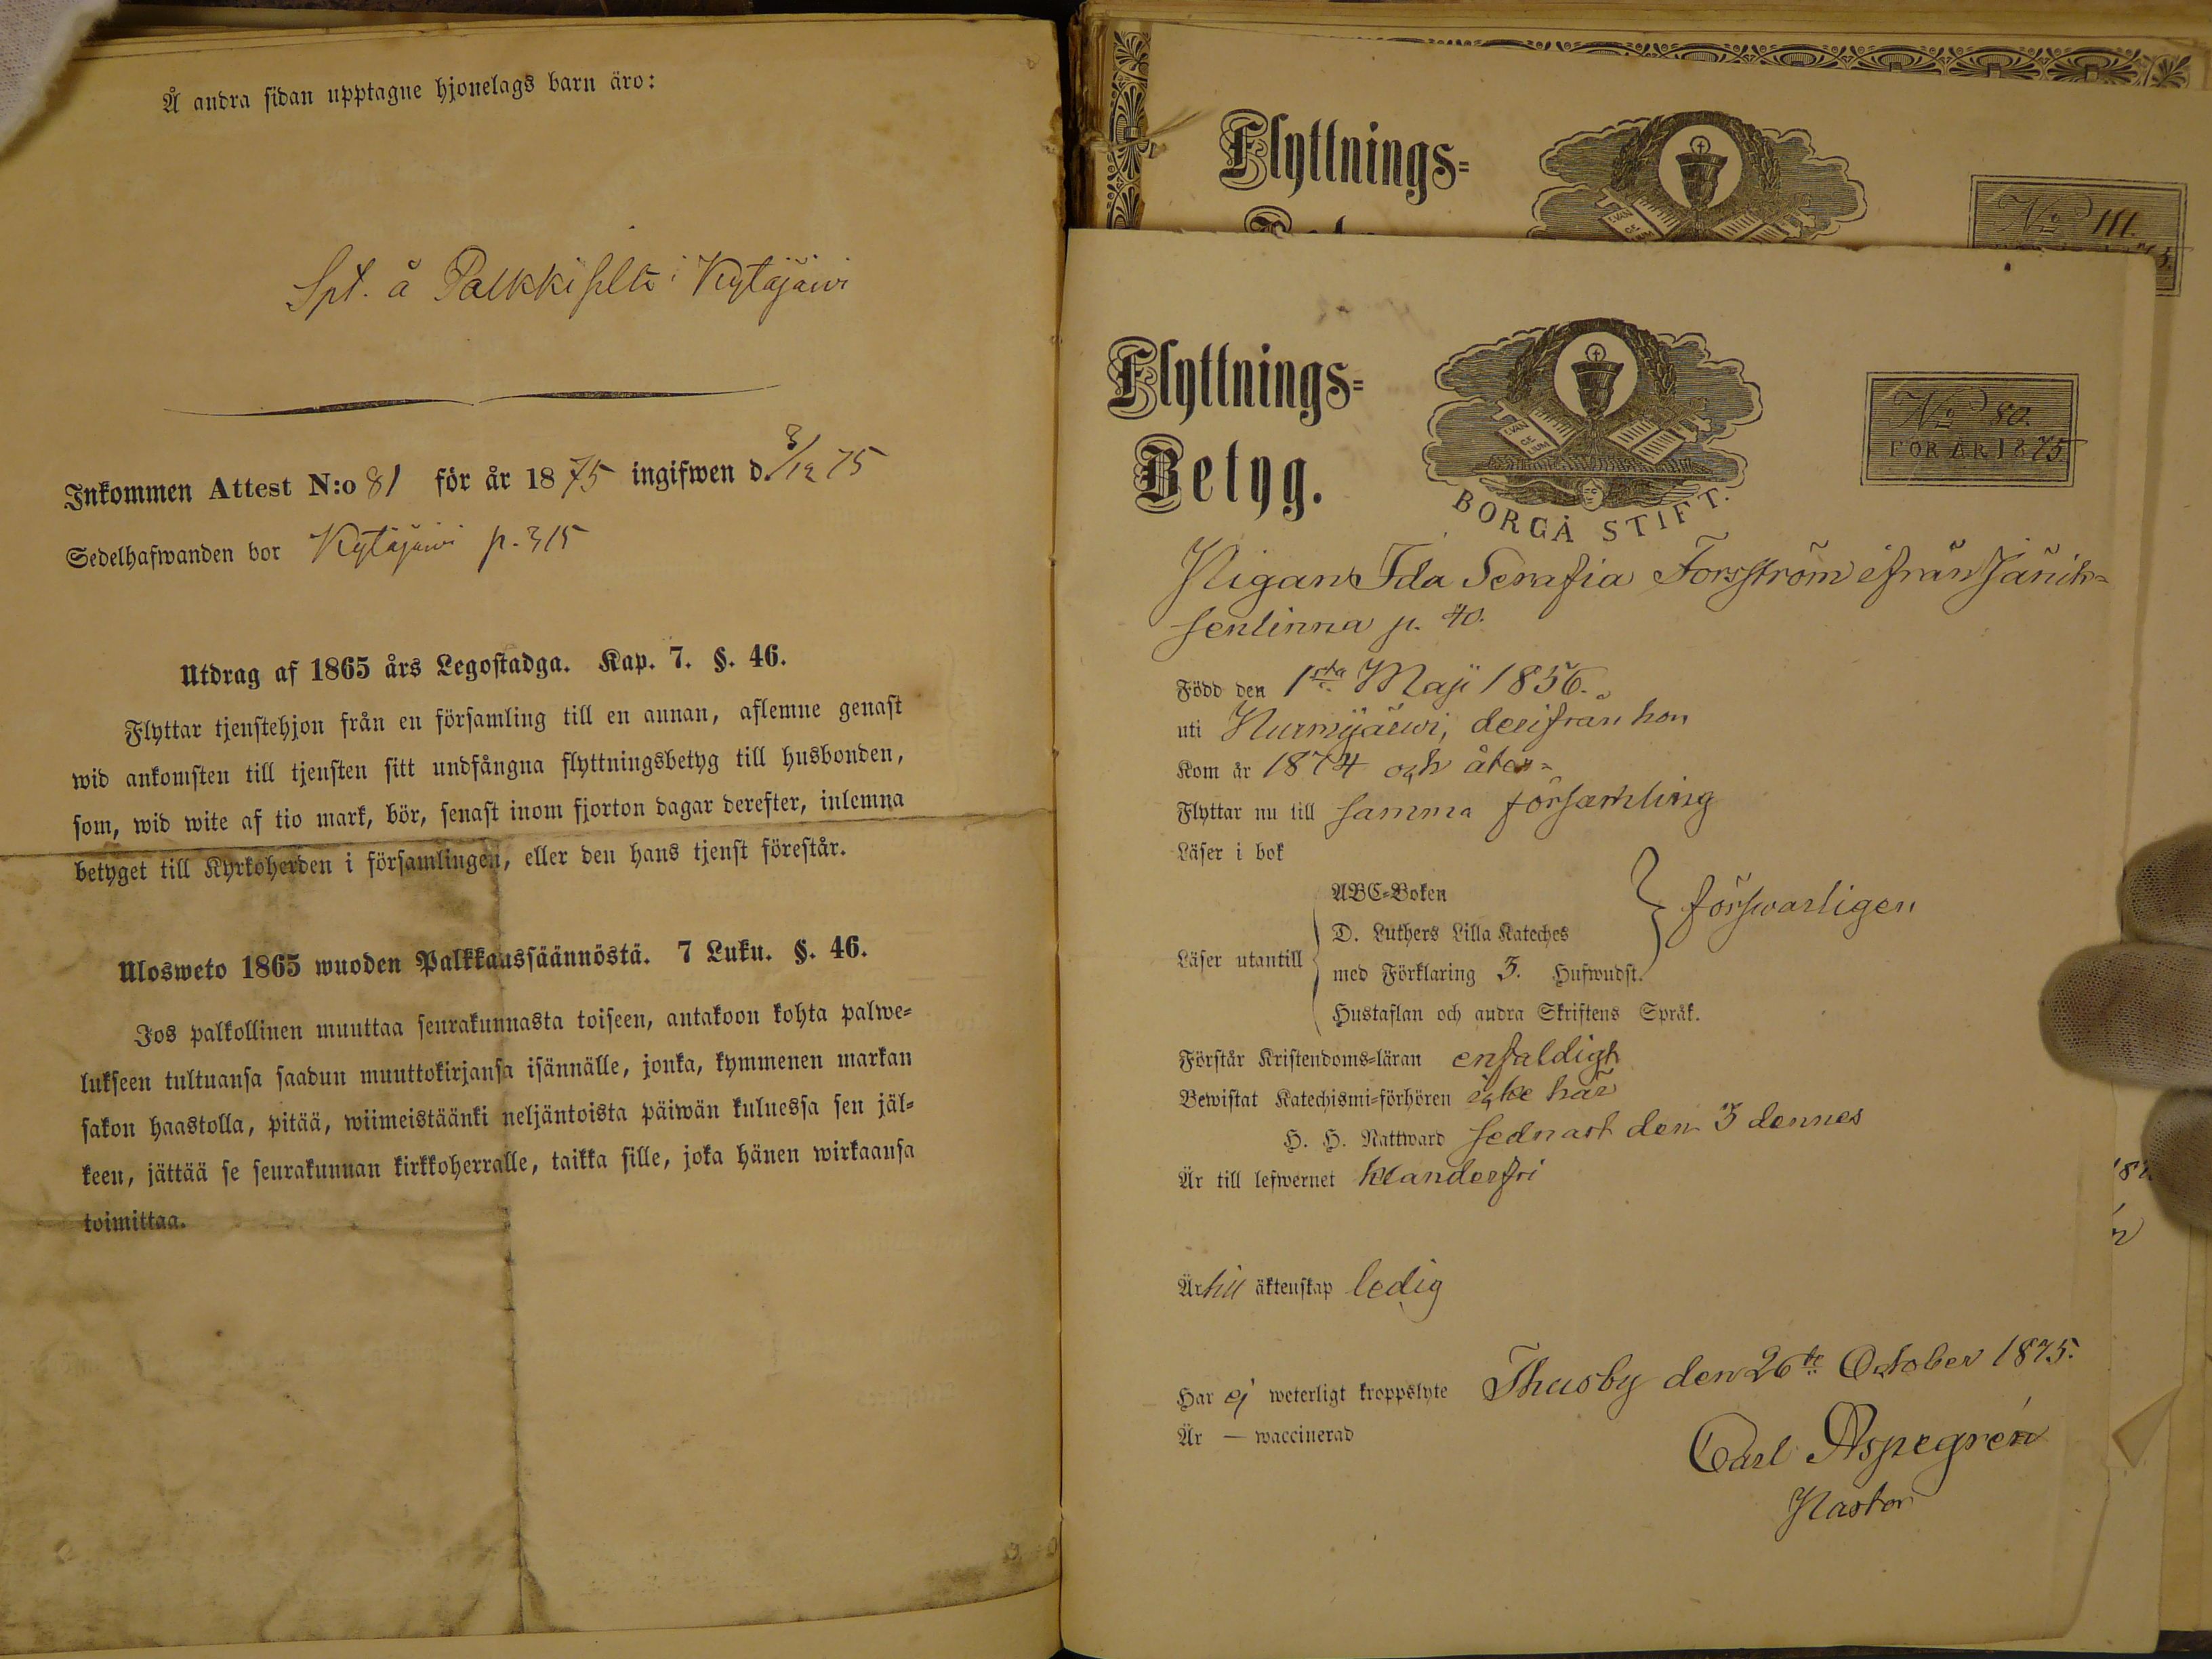 Å andra sidan upptagne hjonelags barn äro:
Spt. å i Kytäjärvi
Inkommen Attest N:o 81 för år 1875 ingifwen d. 3/12 75
Sedelhafwanden bor Kytäjärvi p. 315
Utdrag af 1865 års Legostadga. Kap. 7. §. 46.
Flyttar tjenstehjon från en församling till en annan, aflemne genast
wid ankomsten till tjensten sitt undfångna flyttningsbetyg till husbonden,
som, wid wite af tio mark, bör, senast inom fjorton dagar derefter, inlemna
betyget till Kyrkoherden i församlingen, eller den hans tjenst förestår.
Ulosweto 1865 wuoden Palkkaussäännöstä. 7 Luku. §. 46.
Jos palkollinen muuttaa seurakunnasta toiseen, antakoon kohta palwe=
lukseen tultuansa saadun muuttokirjansa isännälle, jonka, kymmenen markan
sakon haastolla, pitää, wiimeistäänki neljäntoista päiwän kuluessa sen jäl=
keen, jättää se seurakunnan kirkkoherralle, taikka sille, joka hänen wirkaansa
toimittaa.
Flyttnings=
EVAN GE LIUM
No 111.
Flyttnings=
Betyg.
EVAN GE LIUM
BORGÅ STIFT.
No 80.
FÖR ÅR 1875
Pigan Ida Serafia Forsström ifrån Jänik=
senlinna p. 40.
Född den 1sta Maji 1856.
uti Nurmijärwi, derifrån hon
Kom år 1874 och åter=
Flyttar nu till samma församling
Läser i bok
Läser utantill
ABC=Boken
D. Luthers Lilla Kateches
med Förklaring 3. Hufwudst.
Hustaflan och andra Skriftens Språk.
försvarligen
Förstår Kristendoms=läran enfaldigt
Bewistat Katechismi=förhören icke här
H. H. Nattward sednast den 3 dennes
Är till lefwernet klanderfri
Är till äktenskap ledig
Har ej weterligt kroppslyte Thusby den 26te October 1875.
Är — waccinerad
Carl Aspegrén
Pastor